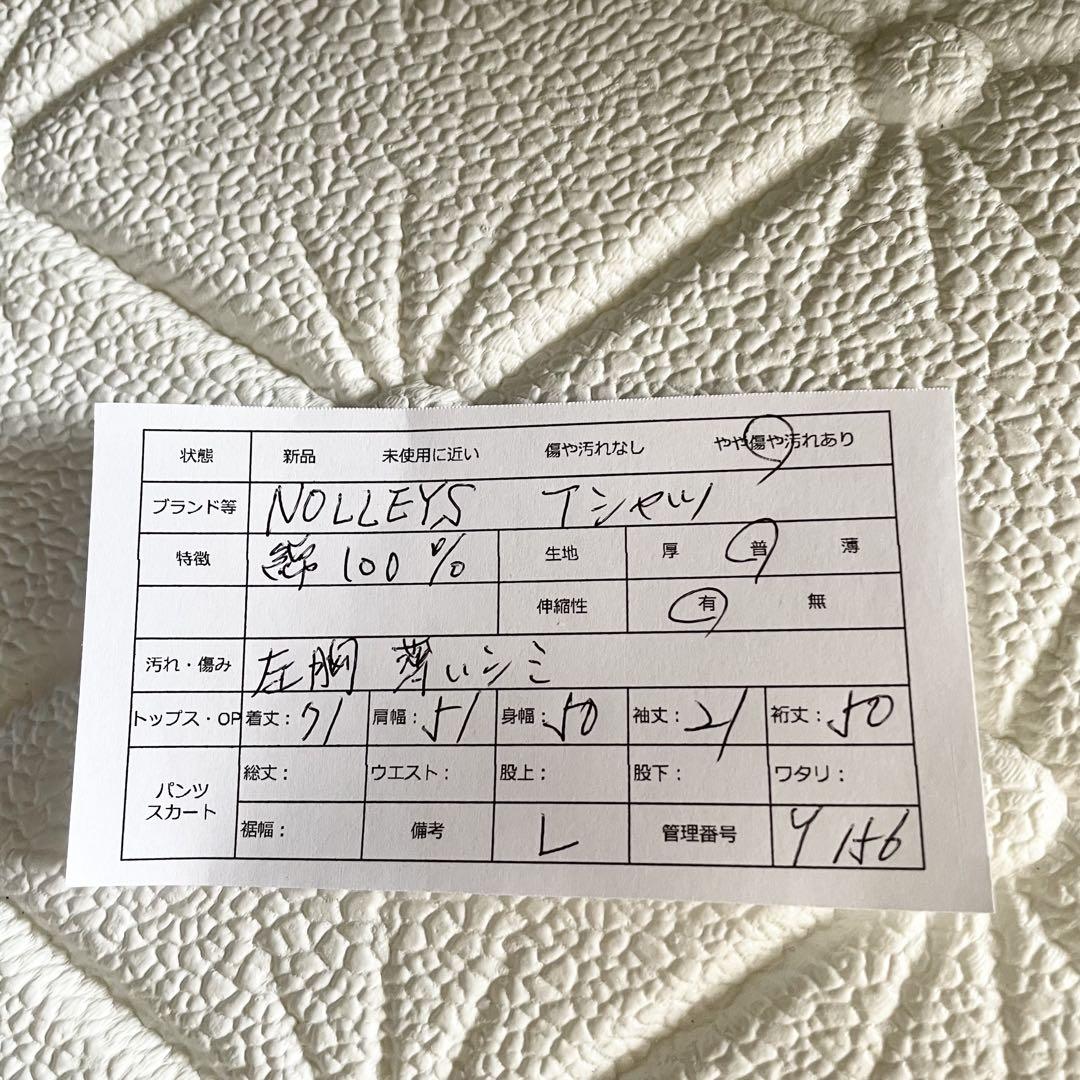 状態 新品 未使用に近い 傷や汚れなし やや傷や汚れあり
ブランド等 NOLLEY'S Tシャツ
特徴 綿100% 生地 厚 普 薄
伸縮性 有 無
汚れ・傷み 左胸 薄いシミ
トップス・OP 着丈:71 肩幅:51 身幅:50 袖丈:21 裄丈:50
パンツ スカート 総丈: ウエスト: 股上: 股下: ワタリ:
裾幅: 備考 L 管理番号 Y156